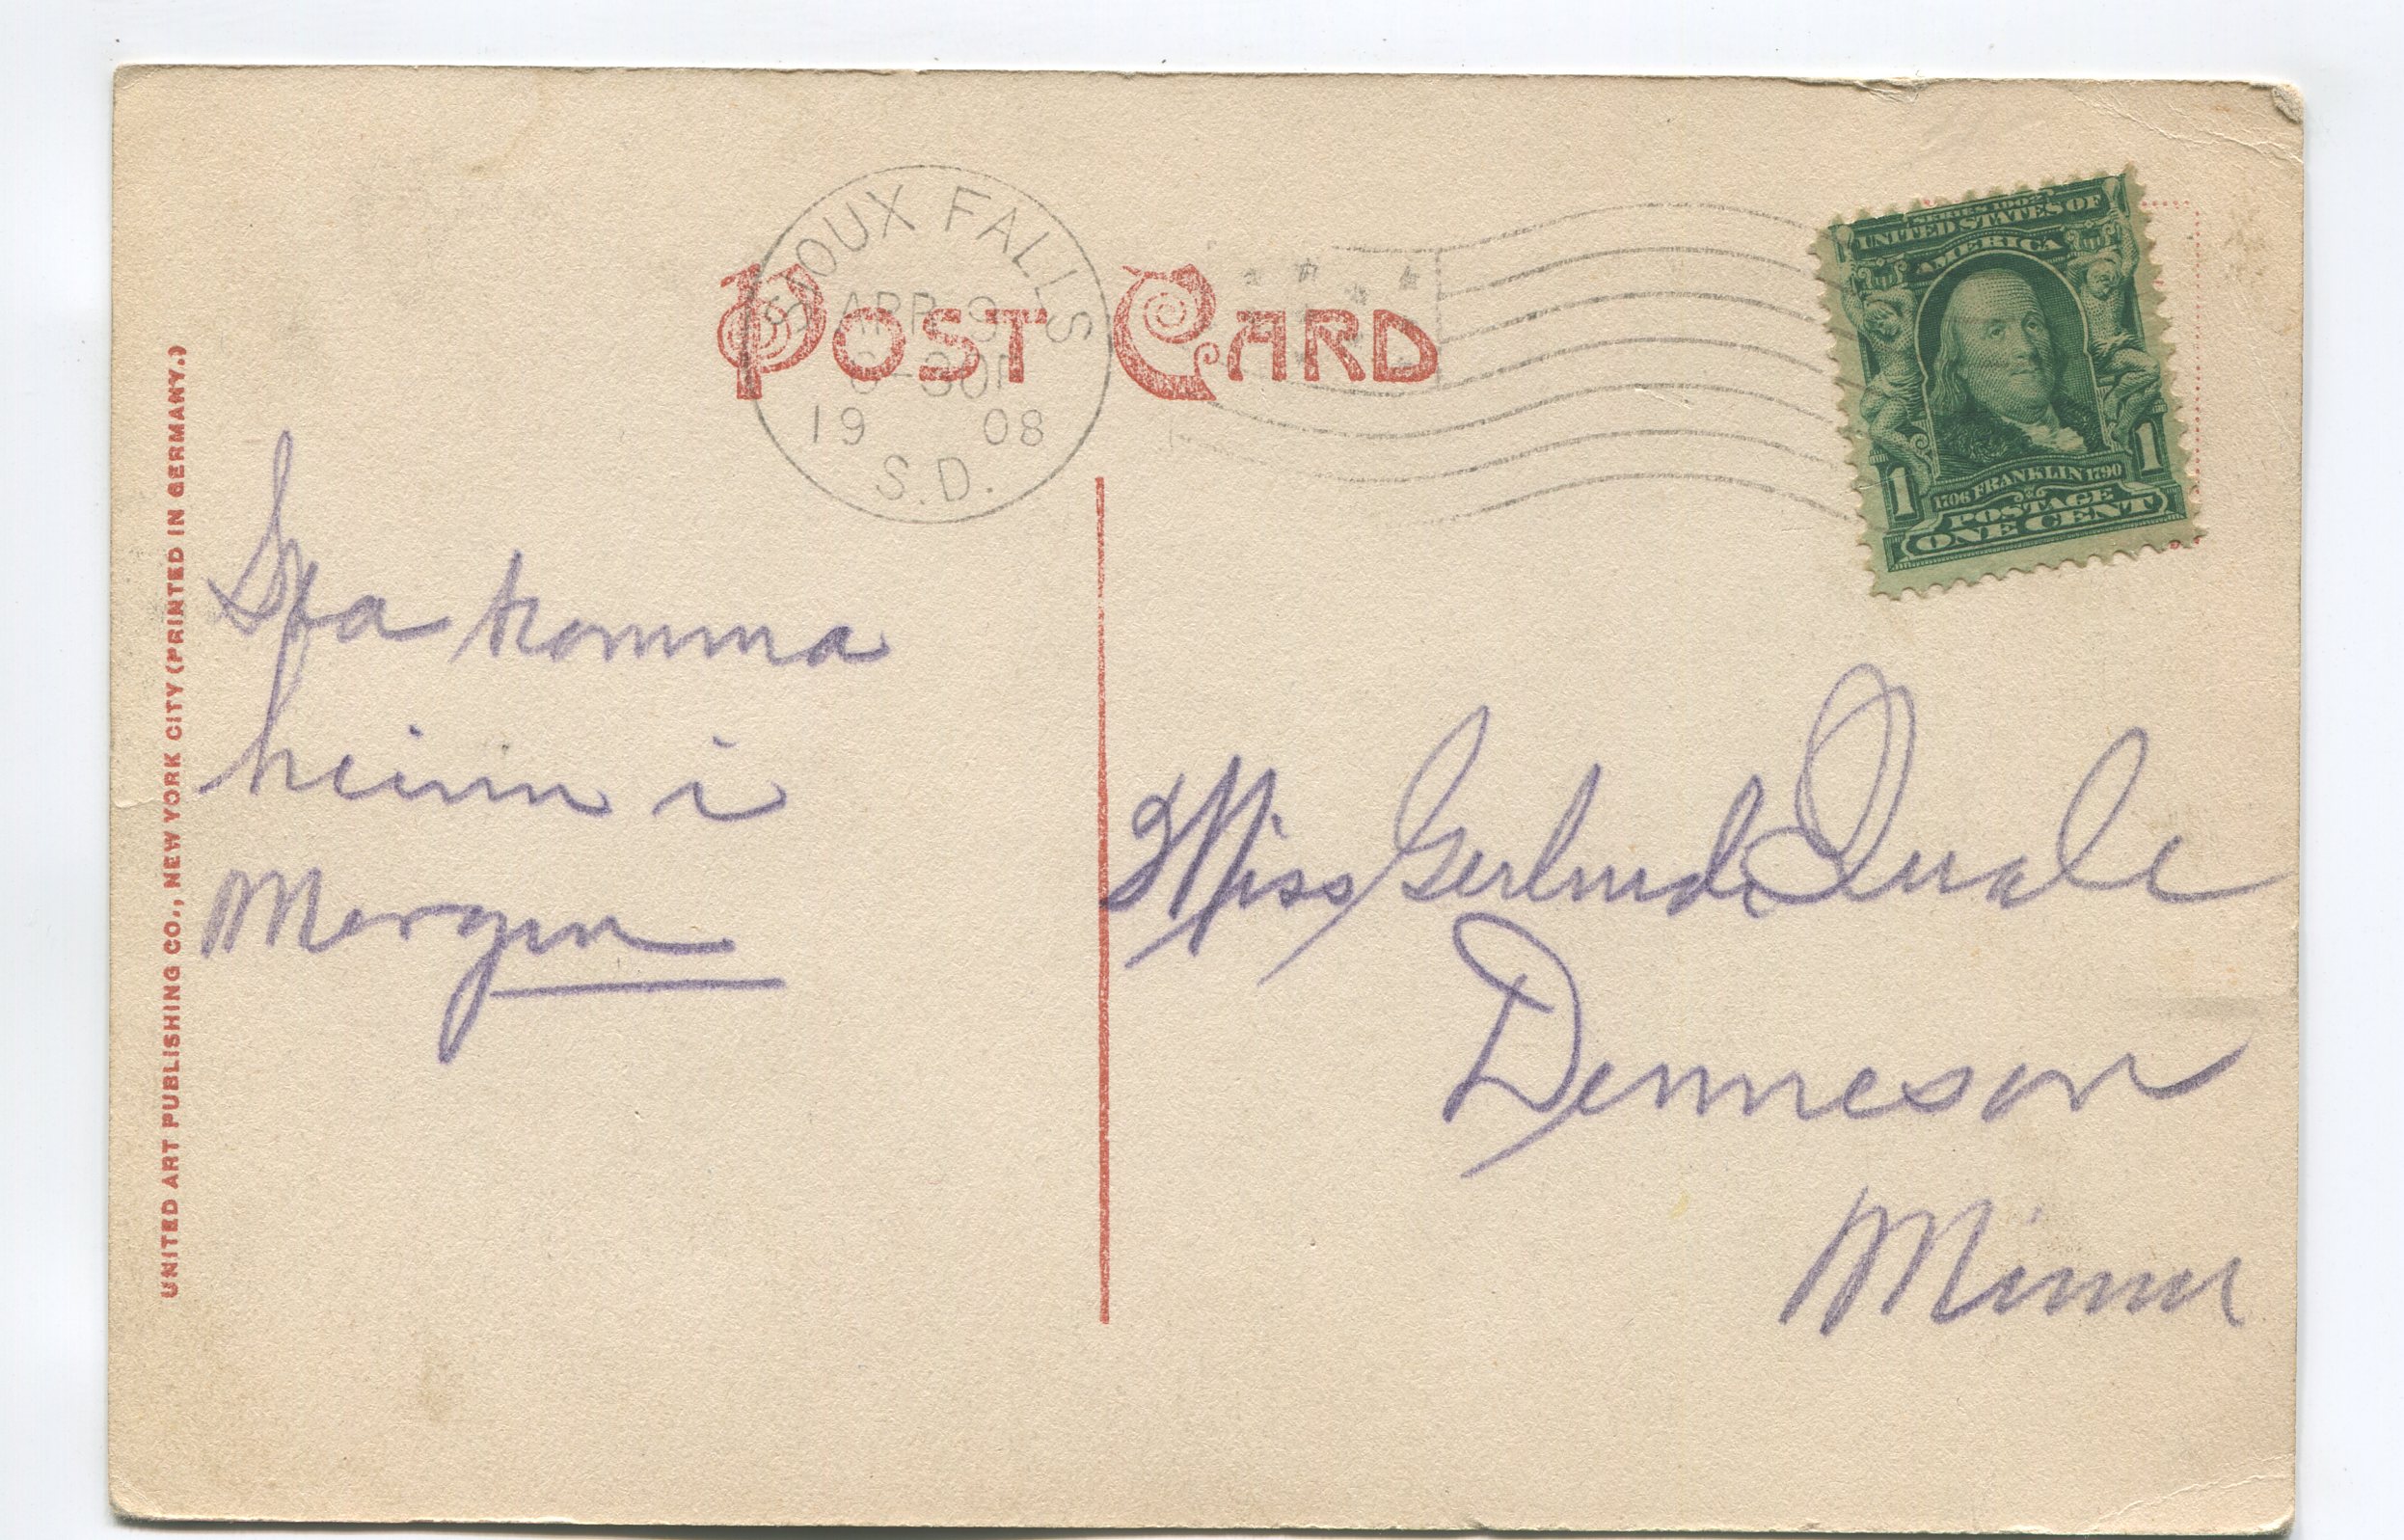 SIOUX FALLS
APR 9
6-30P
19 08
S.D.
POST CARD
SERIES 1902
UNITED STATES OF
AMERICA
1706 FRANKLIN 1790
1 1
POSTAGE
ONE CENT
UNITED ART PUBLISHING CO., NEW YORK CITY (PRINTED IN GERMANY.)
komma
heim i
Morgen
Miss Gertrude Quale
Denneson
Minn